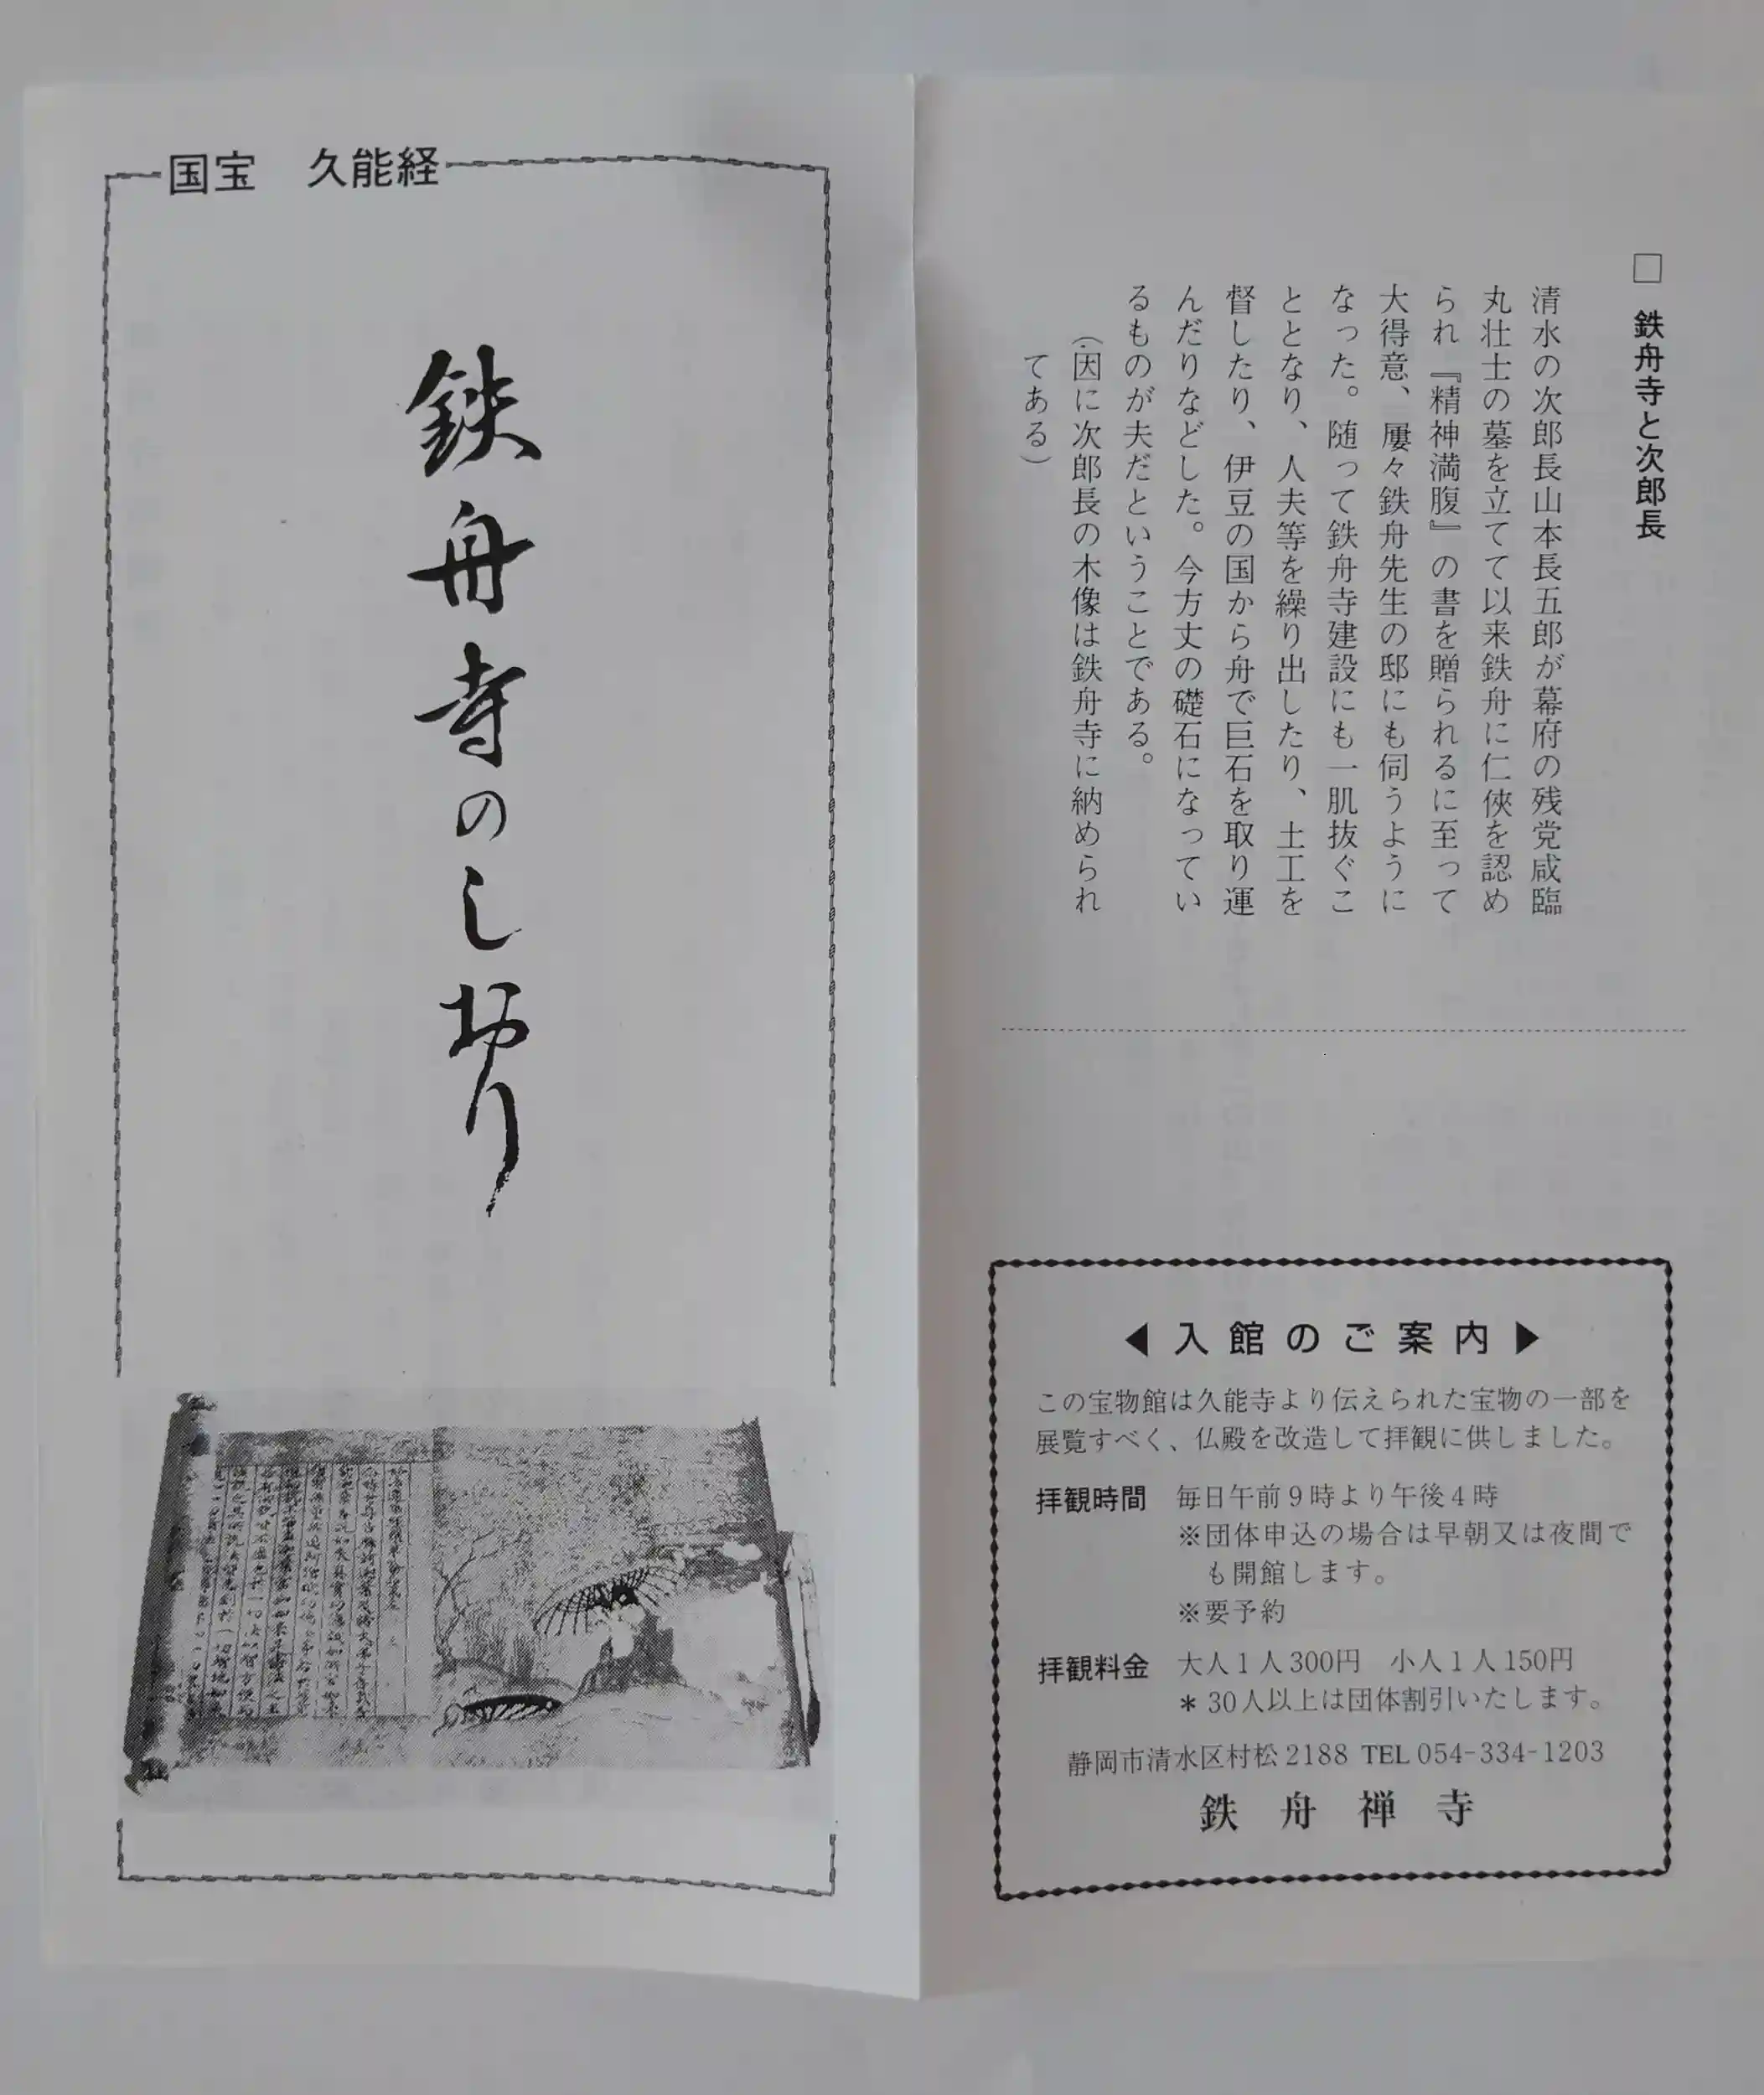 国宝　久能経
鉄舟寺のしおり
□ 鉄舟寺と次郎長
清水の次郎長山本長五郎が幕府の残党咸臨
丸壮士の墓を立てて以来鉄舟に仁侠を認め
られ『精神満腹』の書を贈られるに至って
大得意、屢々鉄舟先生の邸にも伺うように
なった。随って鉄舟寺建設にも一肌抜ぐこ
ととなり、人夫等を繰り出したり、土工を
督したり、伊豆の国から舟で巨石を取り運
んだりなどした。今方丈の礎石になってい
るものが夫だということである。
（因に次郎長の木像は鉄舟寺に納められ
てある）
◀入館のご案内▶
この宝物館は久能寺より伝えられた宝物の一部を
展覧すべく、仏殿を改造して拝観に供しました。
拝観時間　毎日午前9時より午後4時
※団体申込の場合は早朝又は夜間で
も開館します。
※要予約
拝観料金　大人1人300円　小人1人150円
＊30人以上は団体割引いたします。
静岡市清水区村松2188 TEL 054-334-1203
鉄舟禅寺